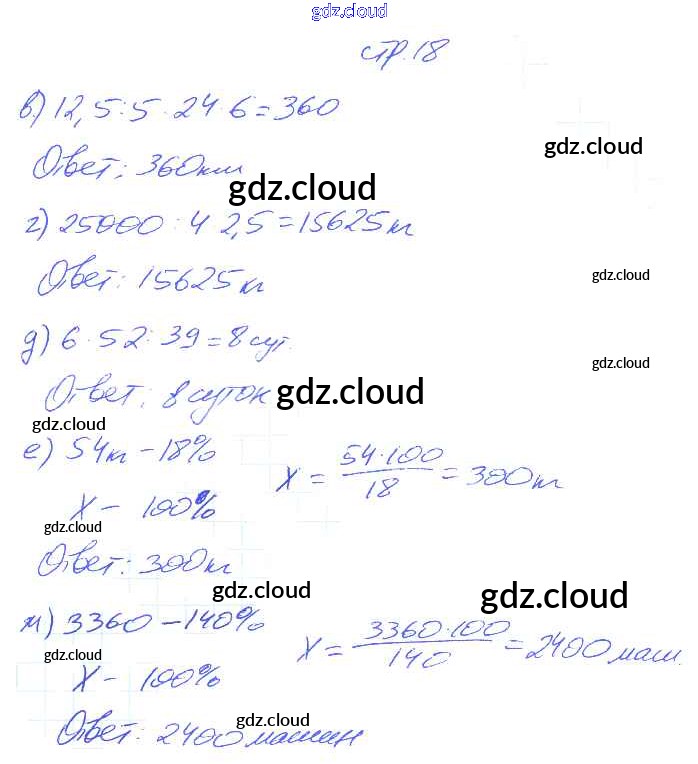 gdz.cloud
стр. 18
в) 12,5 : 5 · 24 · 6 = 360
gdz.cloud
Ответ: 360 км
gdz.cloud
г) 25000 : 4 2,5 = 15625 кг
Ответ: 15625 кг
gdz.cloud
д) 6 · 52 : 39 = 8 сут.
gdz.cloud
Ответ: 8 суток
gdz.cloud
gdz.cloud
е) 54 кг – 18% X = 54·100 / 18 = 300 кг
X – 100%
gdz.cloud
Ответ: 300 кг
gdz.cloud
gdz.cloud
м) 3360 – 140% X = 3360·100 / 140 = 2400 маш.
gdz.cloud
X – 100%
gdz.cloud
Ответ: 2400 машин